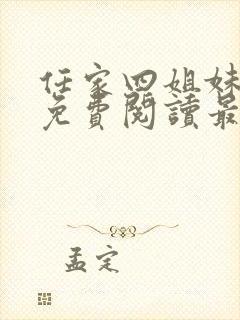 任家四姐妹
免費閱讀最
孟定